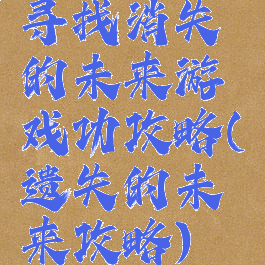 寻找消失
的未来游
戏功攻略(
遗失的未
来攻略)